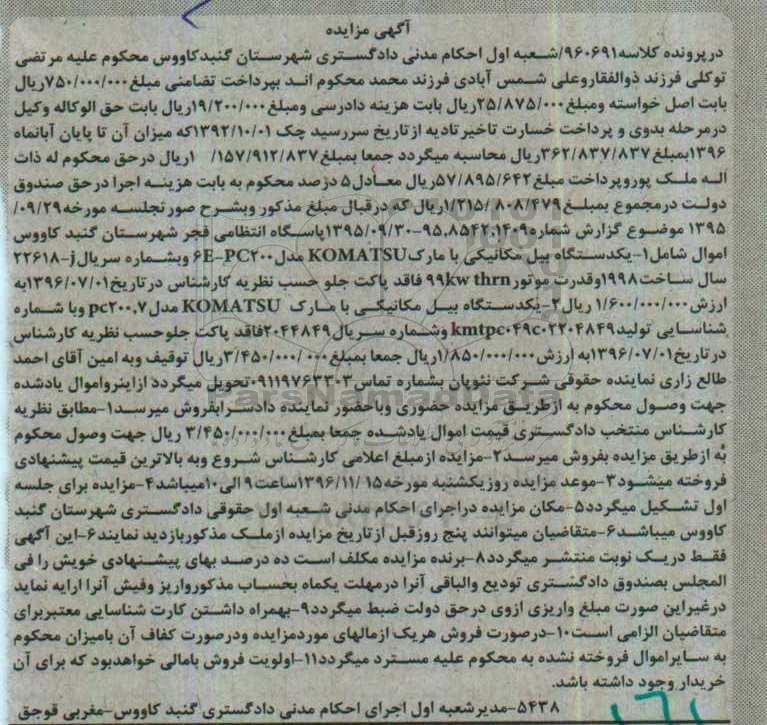 آگهی مزایده
درپرونده کلاسه۹۶۰۶۹۱/شعبه اول احکام مدنی دادگستری شهرستان گنبدکاووس محکوم علیه مرتضی
توکلی فرزند ذوالفقاروعلی شمس آبادی فرزند محمد محکوم اند بپرداخت تضامنی مبلغ۷۵۰/۰۰۰/۰۰۰ریال
بابت اصل خواسته ومبلغ۲۵/۸۷۵/۰۰۰ریال بابت هزینه دادرسی ومبلغ۱۹/۲۰۰/۰۰۰ریال بابت حق الوکاله وکیل
درمرحله بدوی و پرداخت خسارت تاخیرتادیه ازتاریخ سررسید چک ۱۳۹۲/۱۰/۰۱که میزان آن تا پایان آبانماه
۱۳۹۶بمبلغ۳۶۲/۸۳۷/۸۳۷ریال محاسبه میگردد جمعا بمبلغ۱/۱۵۷/۹۱۲/۸۳۷ریال درحق محکوم له ذات
اله ملک پوروپرداخت مبلغ۵۷/۸۹۵/۶۴۲ریال معادل۵ درصد محکوم به بابت هزینه اجرا درحق صندوق
دولت درمجموع بمبلغ۱/۲۱۵/۸۰۸/۴۷۹ریال که درقبال مبلغ مذکور وبشرح صورتجلسه مورخه۰۹/۲۹/
۱۳۹۵ موضوع گزارش شماره۹۵،۸۵۴۲،۱۴۰۹-۱۳۹۵/۰۹/۳۰پاسگاه انتظامی فجر شهرستان گنبد کاووس
اموال شامل۱-یکدستگاه بیل مکانیکی با مارکKOMATSU مدل۶E-PC۲۰۰ وبشماره سریالj-۲۲۶۱۸
سال ساخت۱۹۹۸وقدرت موتور۹۹kw thrn فاقد پاکت جلو حسب نظریه کارشناس درتاریخ۱۳۹۶/۰۷/۰۱به
ارزش۱/۶۰۰/۰۰۰/۰۰۰ ریال۲-یکدستگاه بیل مکانیکی با مارک KOMATSU مدلpc۲۰۰،۷ وبا شماره
شناسایی تولیدkmtpc۰۴۹c۰۲۲۰۴۸۴۹ وشماره سریال۲۰۴۴۸۴۹فاقد پاکت جلوحسب نظریه کارشناس
درتاریخ۱۳۹۶/۰۷/۰۱به ارزش۱/۸۵۰/۰۰۰/۰۰۰ریال جمعا بمبلغ۳/۴۵۰/۰۰۰/۰۰۰ریال توقیف وبه امین آقای احمد
طالع زاری نماینده حقوقی شرکت نئوپان بشماره تماس۰۹۱۱۹۷۶۲۳۰۳تحویل میگردد ازاینرواموال یادشده
جهت وصول محکوم به ازطریق مزایده حضوری وباحضور نماینده دادسرابفروش میرسد۱-مطابق نظریه
کارشناس منتخب دادگستری قیمت اموال یادشده جمعا بمبلغ۳/۴۵۰/۰۰۰/۰۰۰ ریال جهت وصول محکوم
به ازطریق مزایده بفروش میرسد۲-مزایده ازمبلغ اعلامی کارشناس شروع وبه بالاترین قیمت پیشنهادی
فروخته میشود۳-موعد مزایده روزیکشنبه مورخه۱۳۹۶/۱۱/۱۵ساعت۹ الی۱۰میباشد۴-مزایده برای جلسه
اول تشکیل میگردد۵-مکان مزایده دراجرای احکام مدنی شعبه اول حقوقی دادگستری شهرستان گنبد
کاووس میباشد۶-متقاضیان میتوانند پنج روزقبل ازتاریخ مزایده ازملک مذکوربازدید نمایند۶-این آگهی
فقط دریک نوبت منتشر میگردد۸-برنده مزایده مکلف است ده درصد بهای پیشنهادی خویش را فی
المجلس بصندوق دادگستری تودیع والباقی آنرا درمهلت یکماه بحساب مذکورواریز وفیش آنرا ارایه نماید
درغیراین صورت مبلغ واریزی ازوی درحق دولت ضبط میگردد۹-بهمراه داشتن کارت شناسایی معتبربرای
متقاضیان الزامی است۱۰-درصورت فروش هریک ازمالهای موردمزایده ودرصورت کفاف آن بامیزان محکوم
به سایراموال فروخته نشده به محکوم علیه مسترد میگردد۱۱-اولویت فروش بامالی خواهدبود که برای آن
خریدار وجود داشته باشد.
۵۴۳۸-مدیرشعبه اول اجرای احکام مدنی دادگستری گنبد کاووس-مغربی قوجق
ParsNamadData